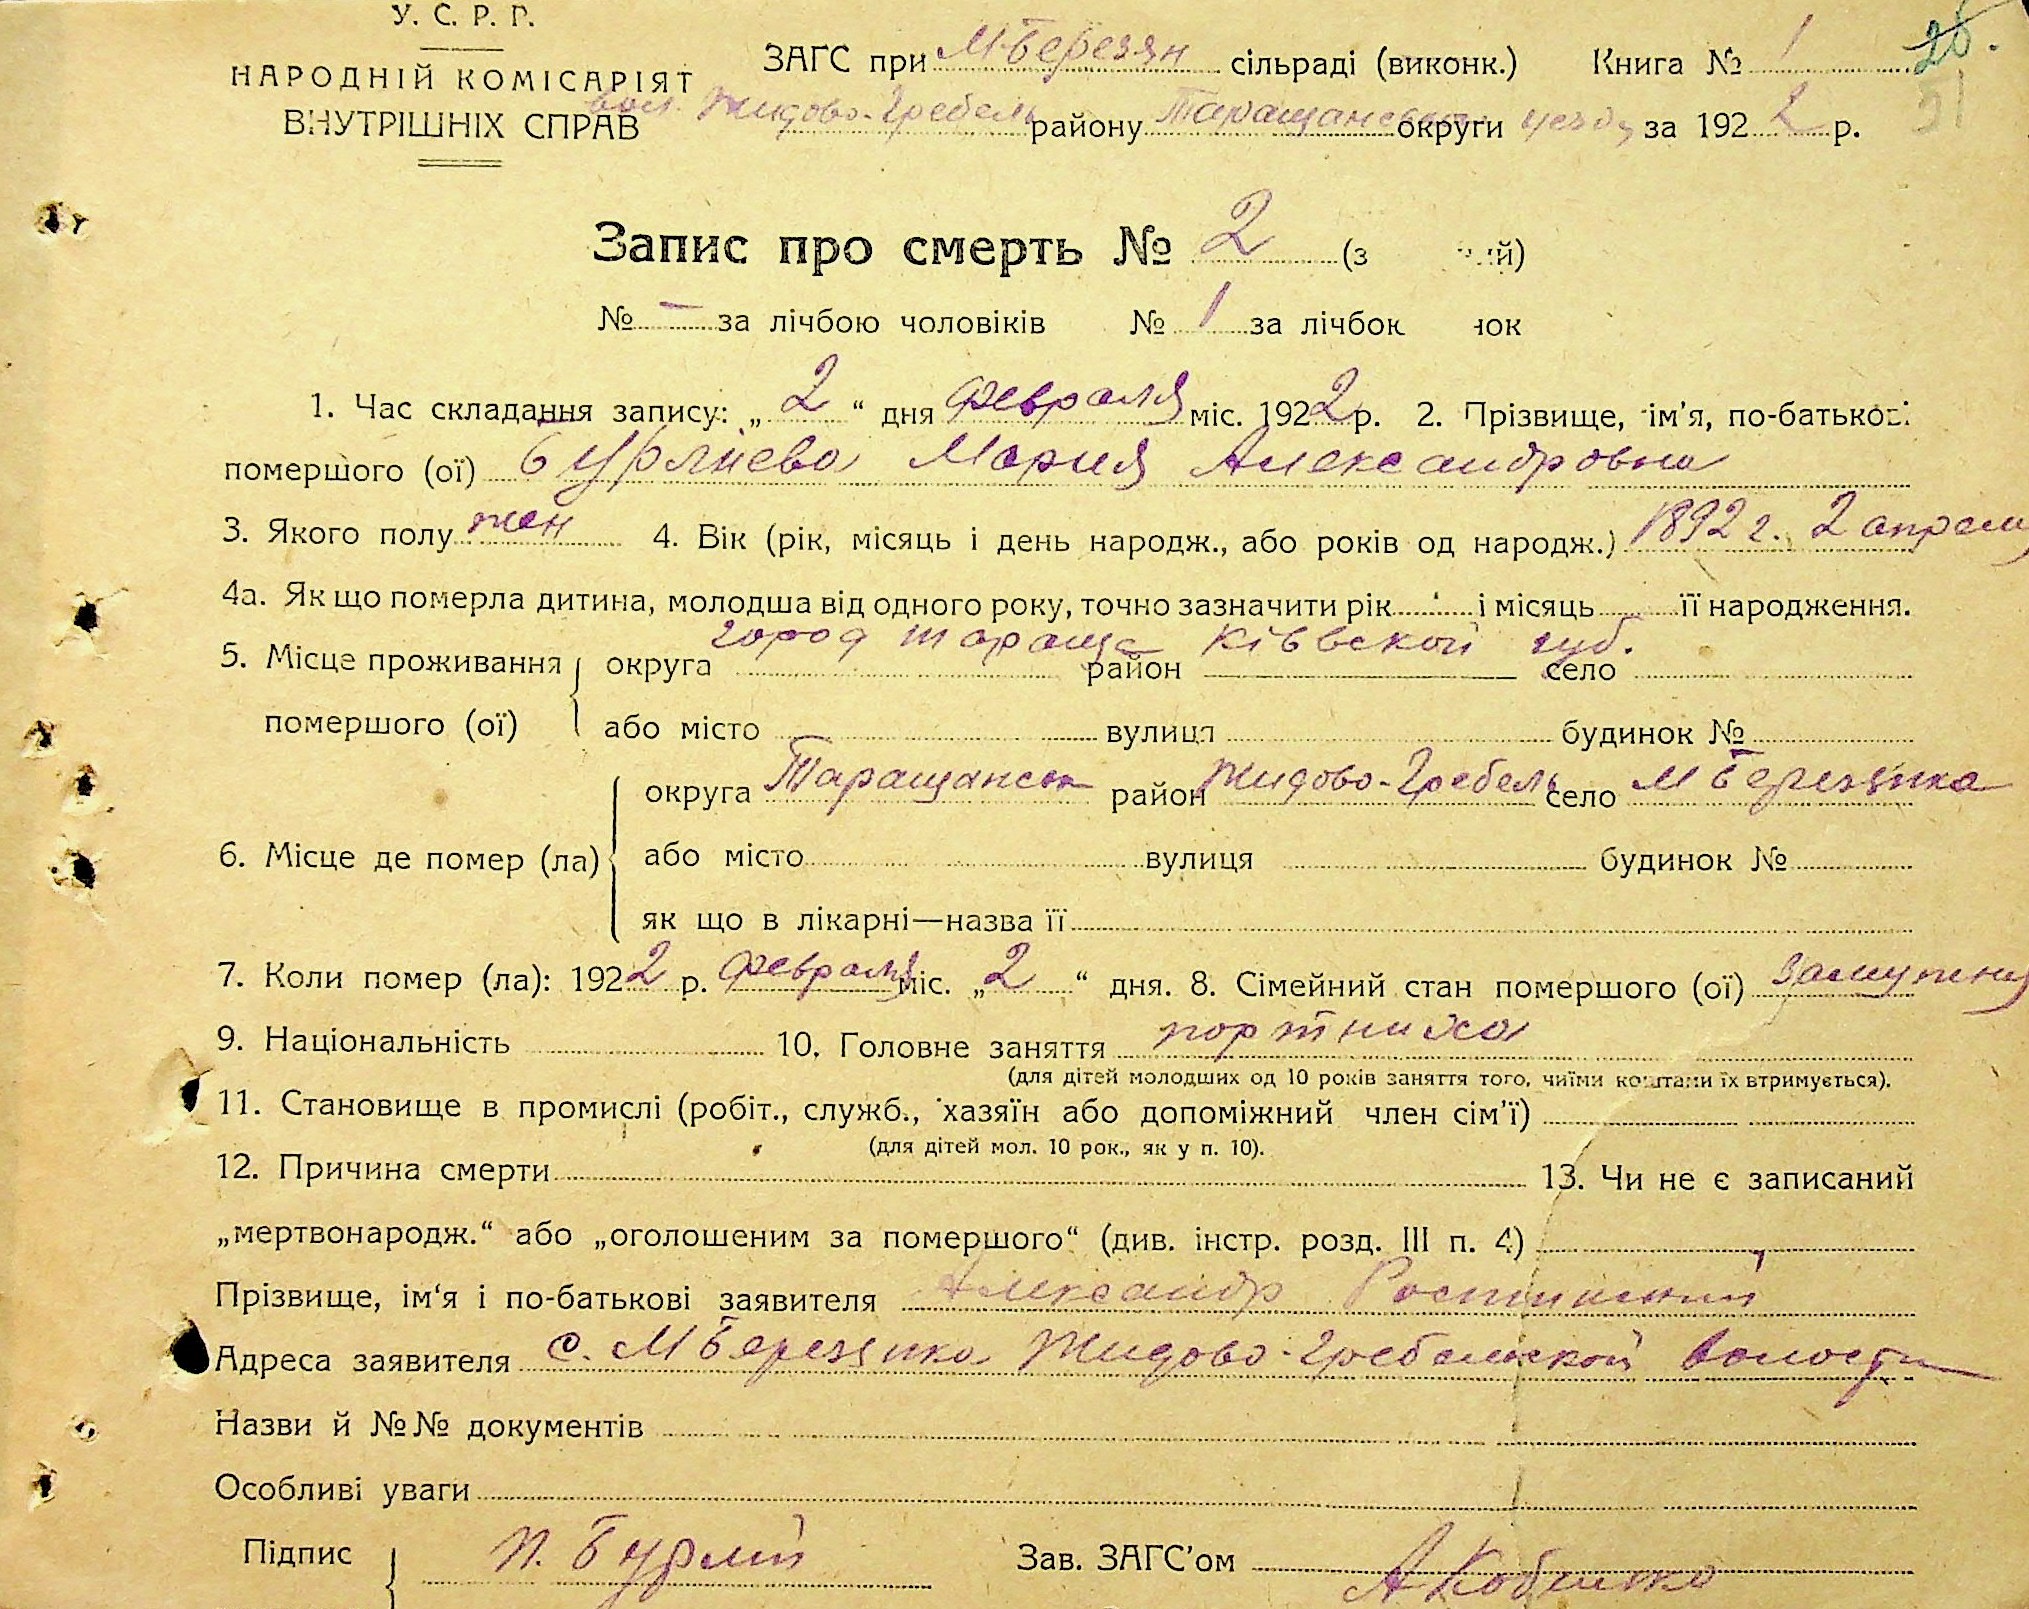 У. С. Р. Р.
НАРОДНІЙ КОМІСАРІЯТ
ВНУТРІШНІХ СПРАВ
ЗАГС при М-Березян сільраді (виконк.) Книга № 1
вол. Жидово-Гребель району Таращанськ округи уезду за 1922 р.
Запис про смерть № 2 (з ий)
№ – за лічбою чоловіків № 1 за лічбою нок
1. Час складання запису: „2“ дня февраля міс. 1922 р. 2. Прізвище, ім'я, по-батькові
помершого (ої) Бурлиева Мария Александровна
3. Якого полу жен 4. Вік (рік, місяць і день народж., або років од народж.) 1892 г. 2 апреля
4а. Як що померла дитина, молодша від одного року, точно зазначити рік і місяць її народження.
город тараща Київской губ.
5. Місце проживання округа район село
помершого (ої) або місто вулиця будинок №
округа Таращанск район Жидово-Гребель село М Березянка
6. Місце де помер (ла) або місто вулиця будинок №
як що в лікарні—назва її
7. Коли помер (ла): 1922 р. февраля міс. „2“ дня. 8. Сімейний стан помершого (ої) замужняя
9. Національність 10. Головне заняття портниха
(для дітей молодших од 10 років заняття того, чиїми коштами їх втримується).
11. Становище в промислі (робіт., служб., хазяїн або допоміжний член сім'ї)
(для дітей мол. 10 рок., як у п. 10).
12. Причина смерти 13. Чи не є записаний
„мертвонародж.“ або „оголошеним за помершого“ (див. інстр. розд. III п. 4)
Прізвище, ім'я і по-батькові заявителя Александр
Адреса заявителя с. М Березянка Жидово-Гребельской волости
Назви й №№ документів
Особливі уваги
Підпис П. Бурлій Зав. ЗАГС'ом